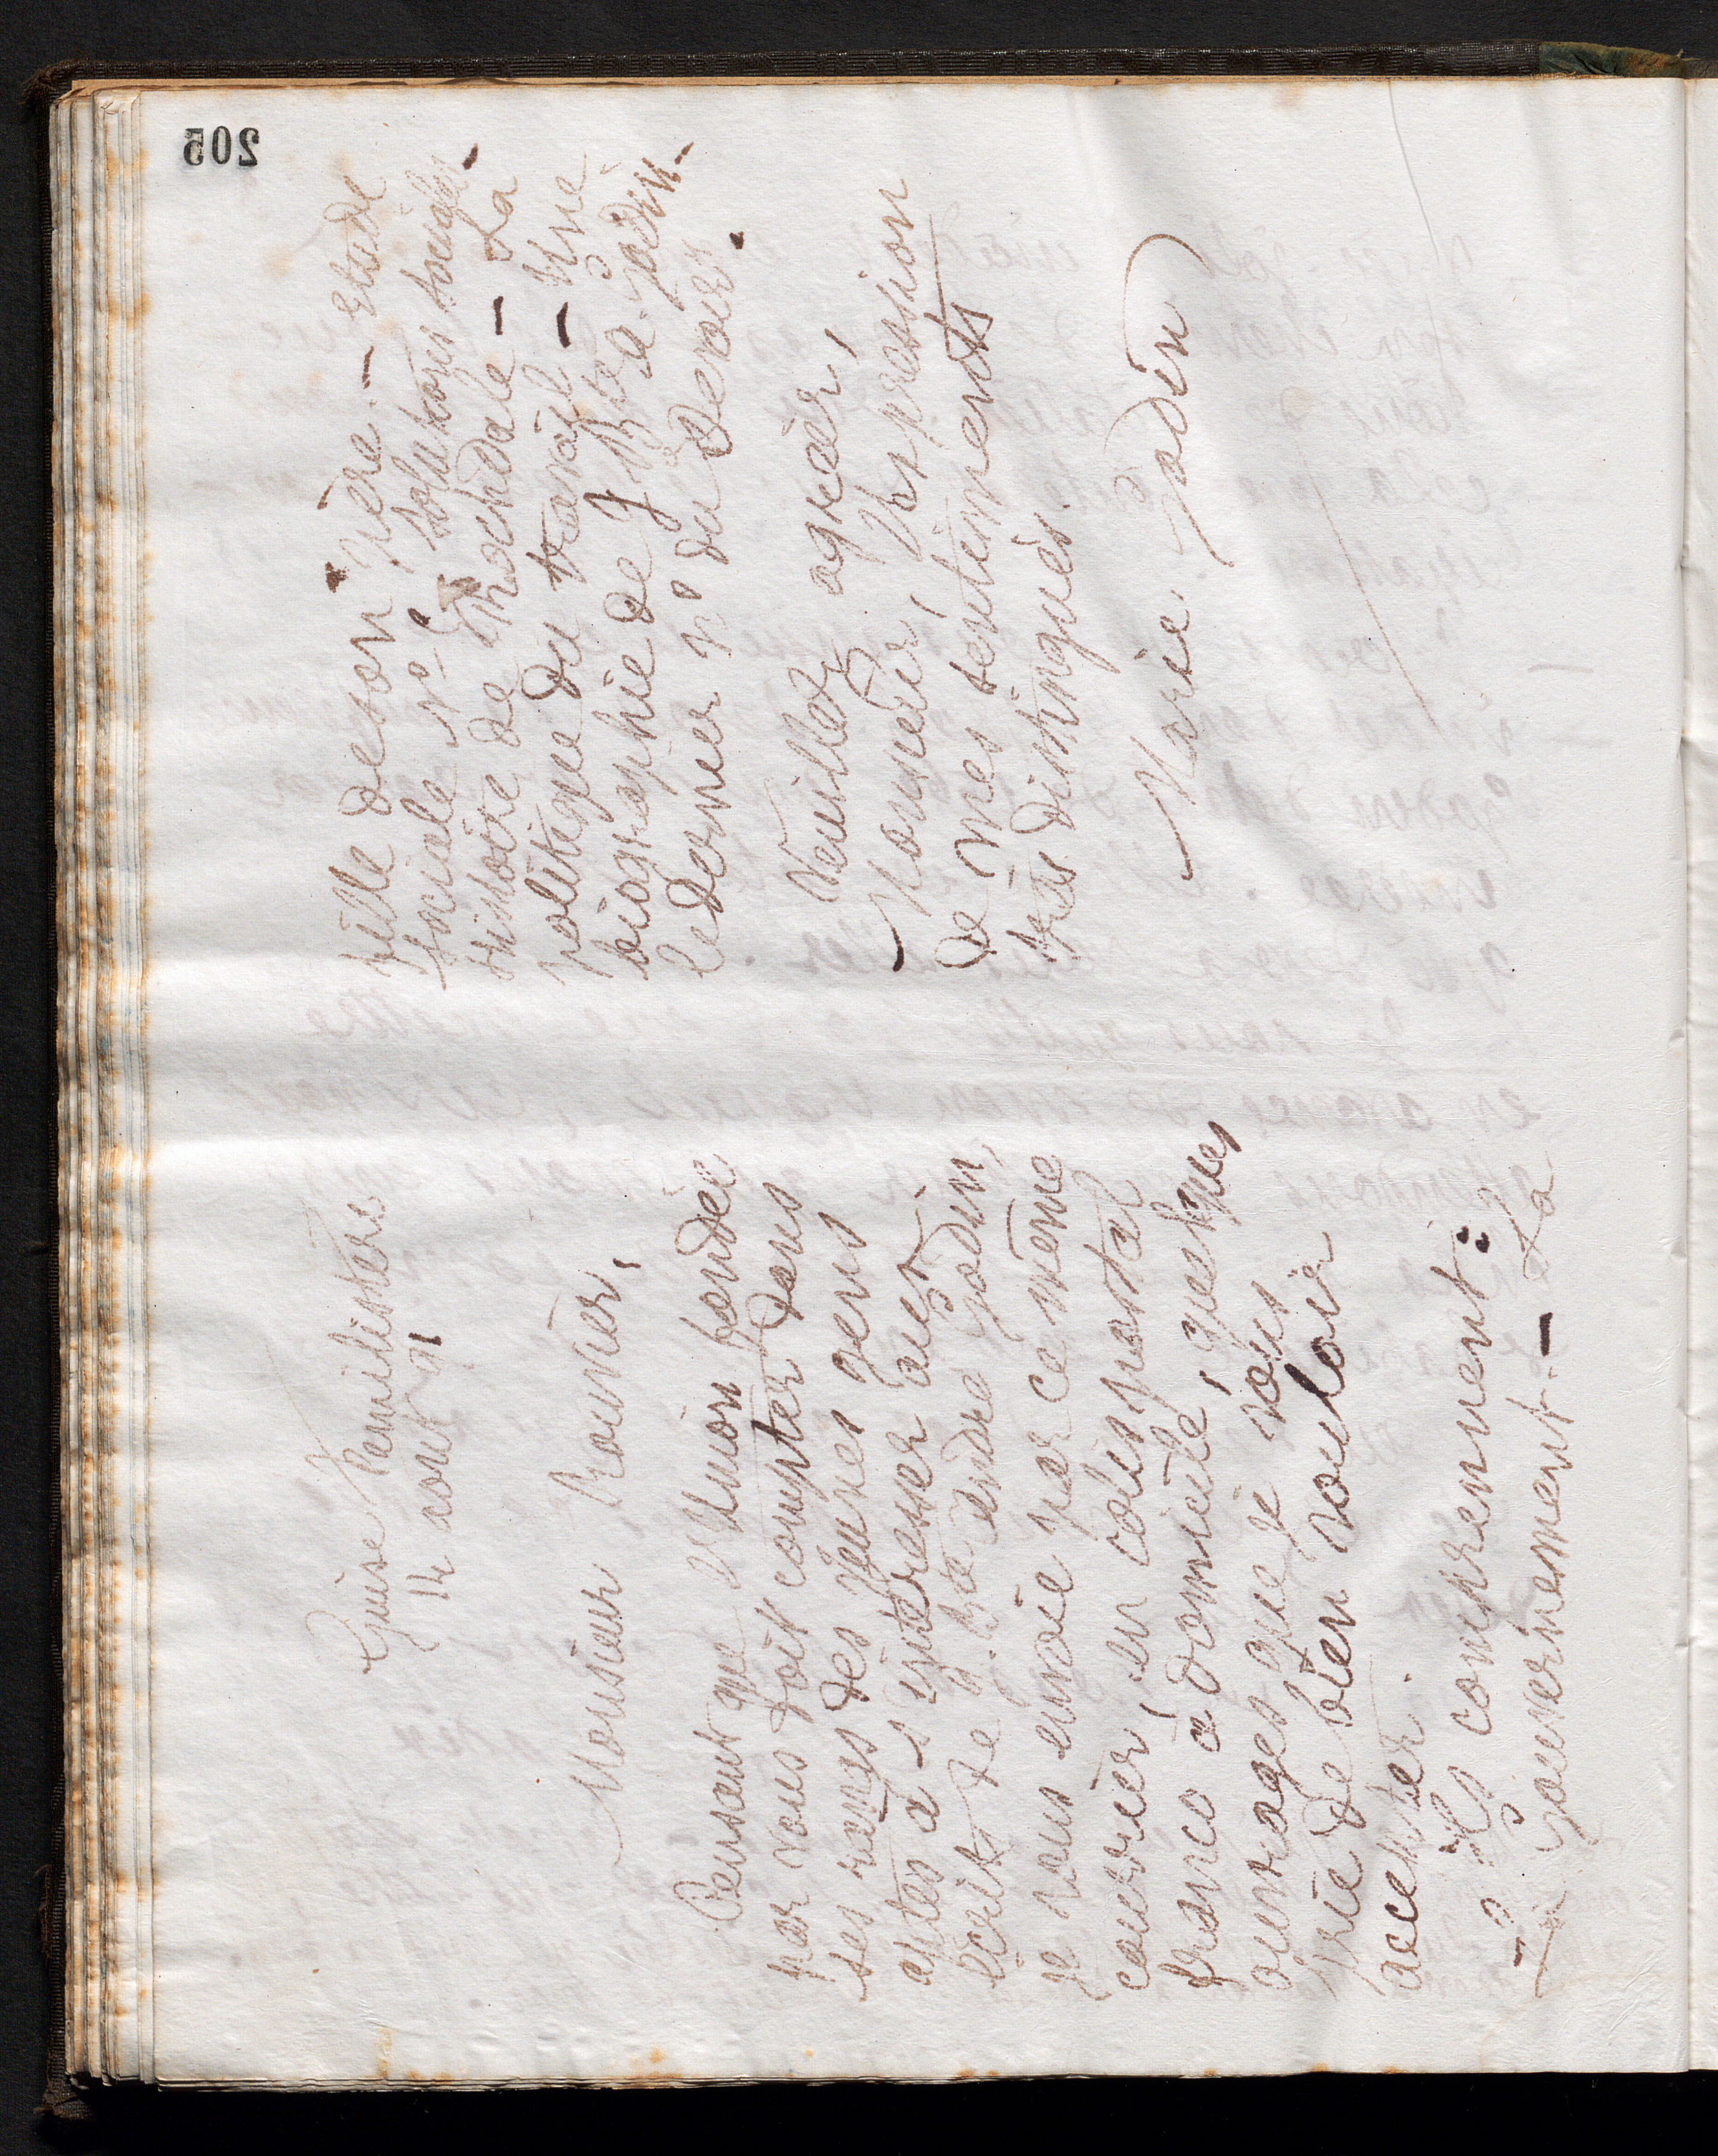 205
Guise Familistère
14 août 91
Monsieur Rouvier,
Pensant que l'Union fondée
par vous doit compter dans
ses rangs des jeunes gens
aptes à s'intéresser aux
écrits de J. Bte André Godin,
je vous envoie par ce même
courrier, en colis postal
franco à domicile, quelques
ouvrages que je vous
prie de bien vouloir
accepter.
Ils contiennent :
Le Gouvernement. — La
fille de son père. — Etude
sociale No Solutions sociales —
histoire de Rochdale — La
politique du travail — Une
biographie de J Bte A. Godin —
le dernier no du Devoir.
Veuillez agréer,
Monsieur, l'expression
de mes sentiments
très distingués.
Marie Godin